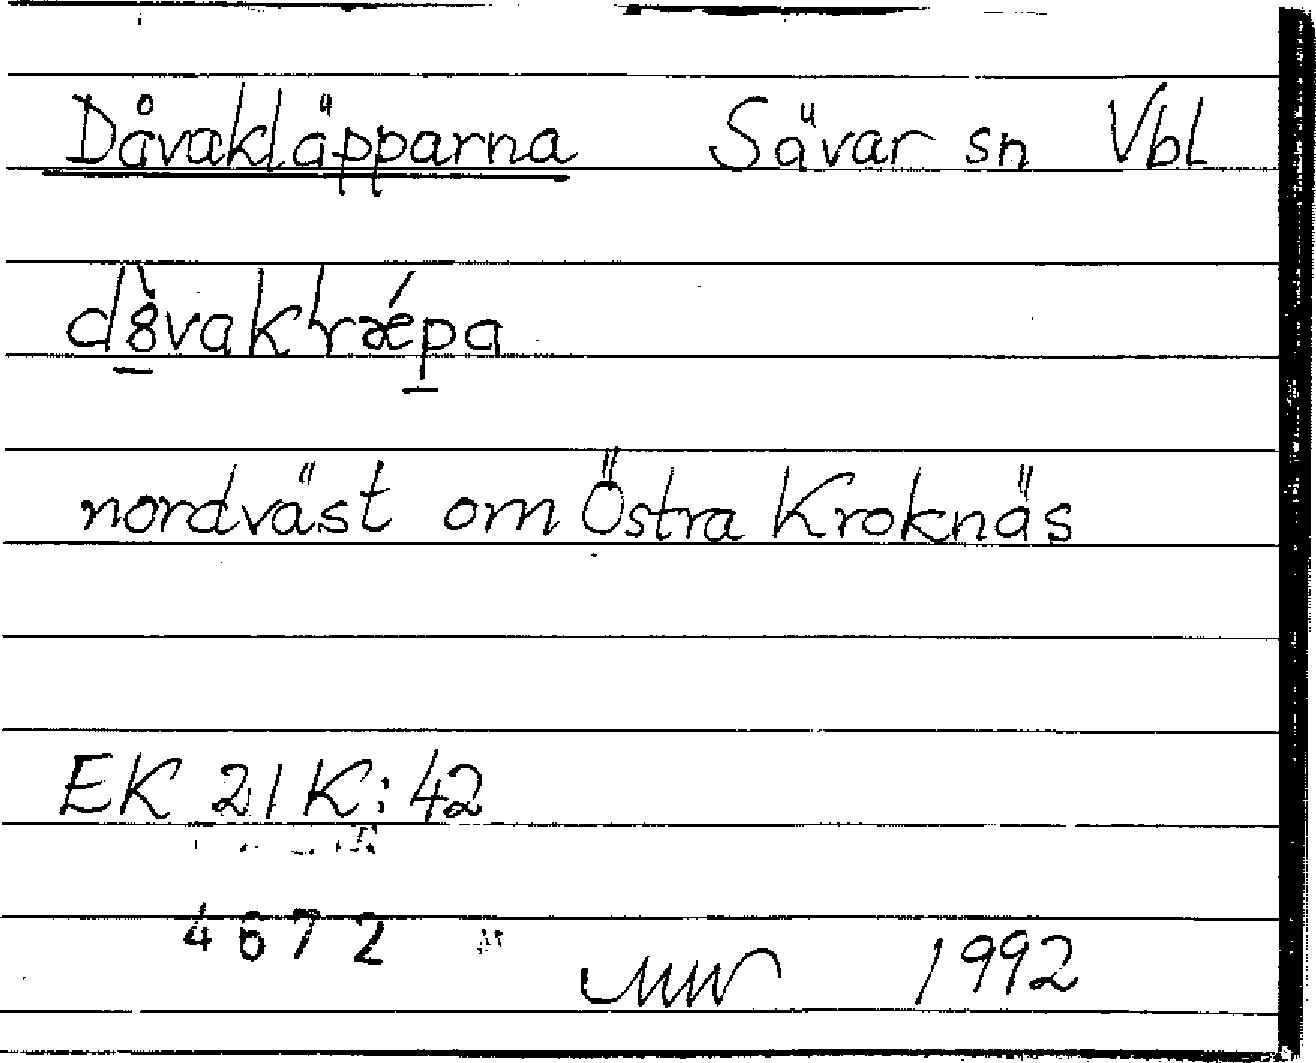 Dåvakläpparna Sävar sn Vbl
nordväst om Östra Kroknäs
EK 21 K: 42
4672
1992